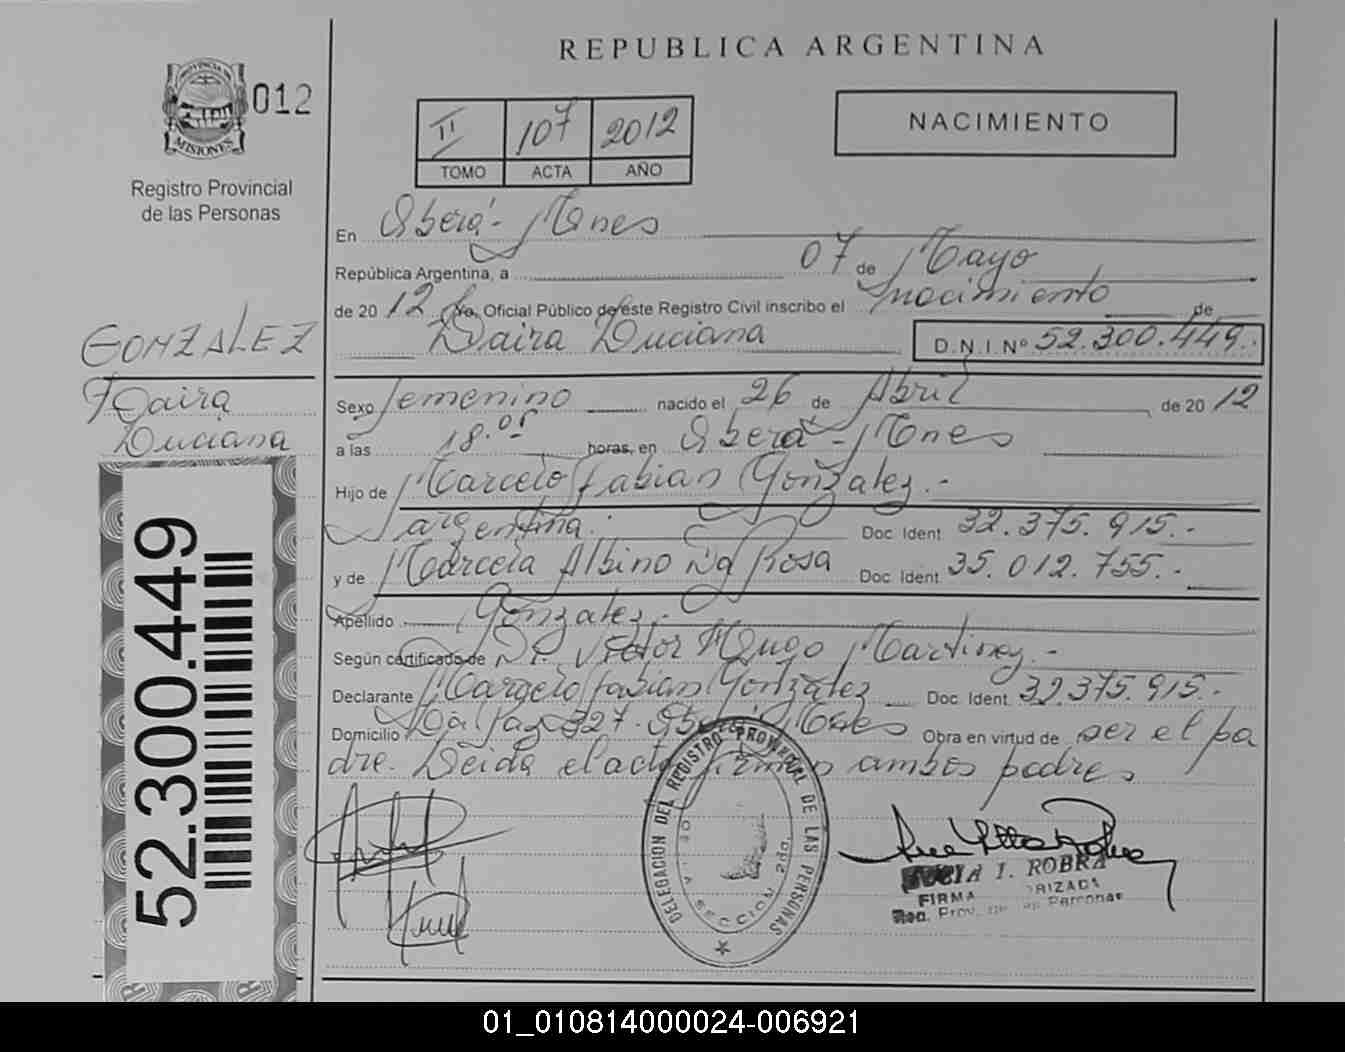 REPUBLICA ARGENTINA
PROVINCIA DE
MISIONES
012
Registro Provincial
de las Personas
II 107 2012
TOMO ACTA AÑO
NACIMIENTO
En Oberá - Mnes
República Argentina, a 07 de Mayo
de 2012 Yo, Oficial Público de este Registro Civil inscribo el nacimiento de
Daira Luciana D.N.I.Nº 52.300.449.-
GONZALEZ
Daira
Luciana
Sexo femenino nacido el 26 de Abril de 2012
a las 18.05 horas, en Oberá - Mnes
Hijo de Marcelo Fabian Gonzalez.-
argentina. Doc Ident 32.375.915.-
y de Marcela Albino Da Rosa Doc Ident. 35.012.755.-
Apellido Gonzalez.-
Según certificado de Dr. Victor Hugo Martinez.-
Declarante Marcelo Fabian Gonzalez Doc Ident. 32.375.915.-
Domicilio La Paz 327 - Oberá - Mnes Obra en virtud de ser el pa
dre. Leida el acta firman ambos padres
52.300.449
DELEGACION DEL REGISTRO PROVINCIAL DE LAS PERSONAS
SECCION 2da.
I. ROBRA
FIRMA
Reg. Prov. de las Personas
01_010814000024-006921